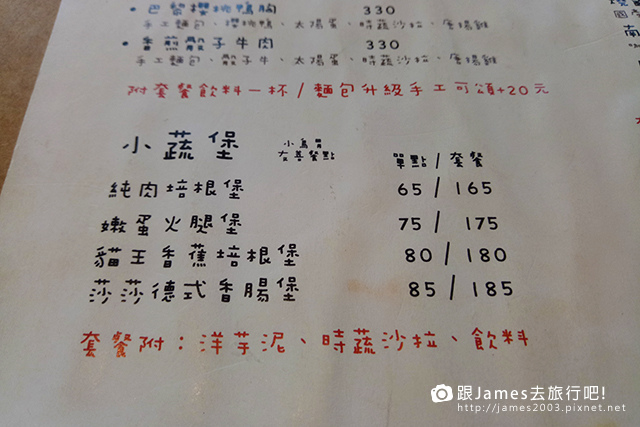 •巴黎櫻桃鴨胸 330
手工麵包、櫻桃鴨、太陽蛋、時蔬沙拉、
•香煎骰子牛肉 330
手工麵包、骰子牛、太陽蛋、時蔬沙拉、
附套餐飲料一杯/麵包升級手工可頌+20元
小蔬堡 小鳥胃友善餐點 單點/套餐
純肉培根堡 65/165
嫩蛋火腿堡 75/175
貓王香蕉培根堡 80/180
莎莎德式香腸堡 85/185
套餐附：洋芋泥、時蔬沙拉、飲料
跟James去旅行吧!
http://james2003.pixnet.net